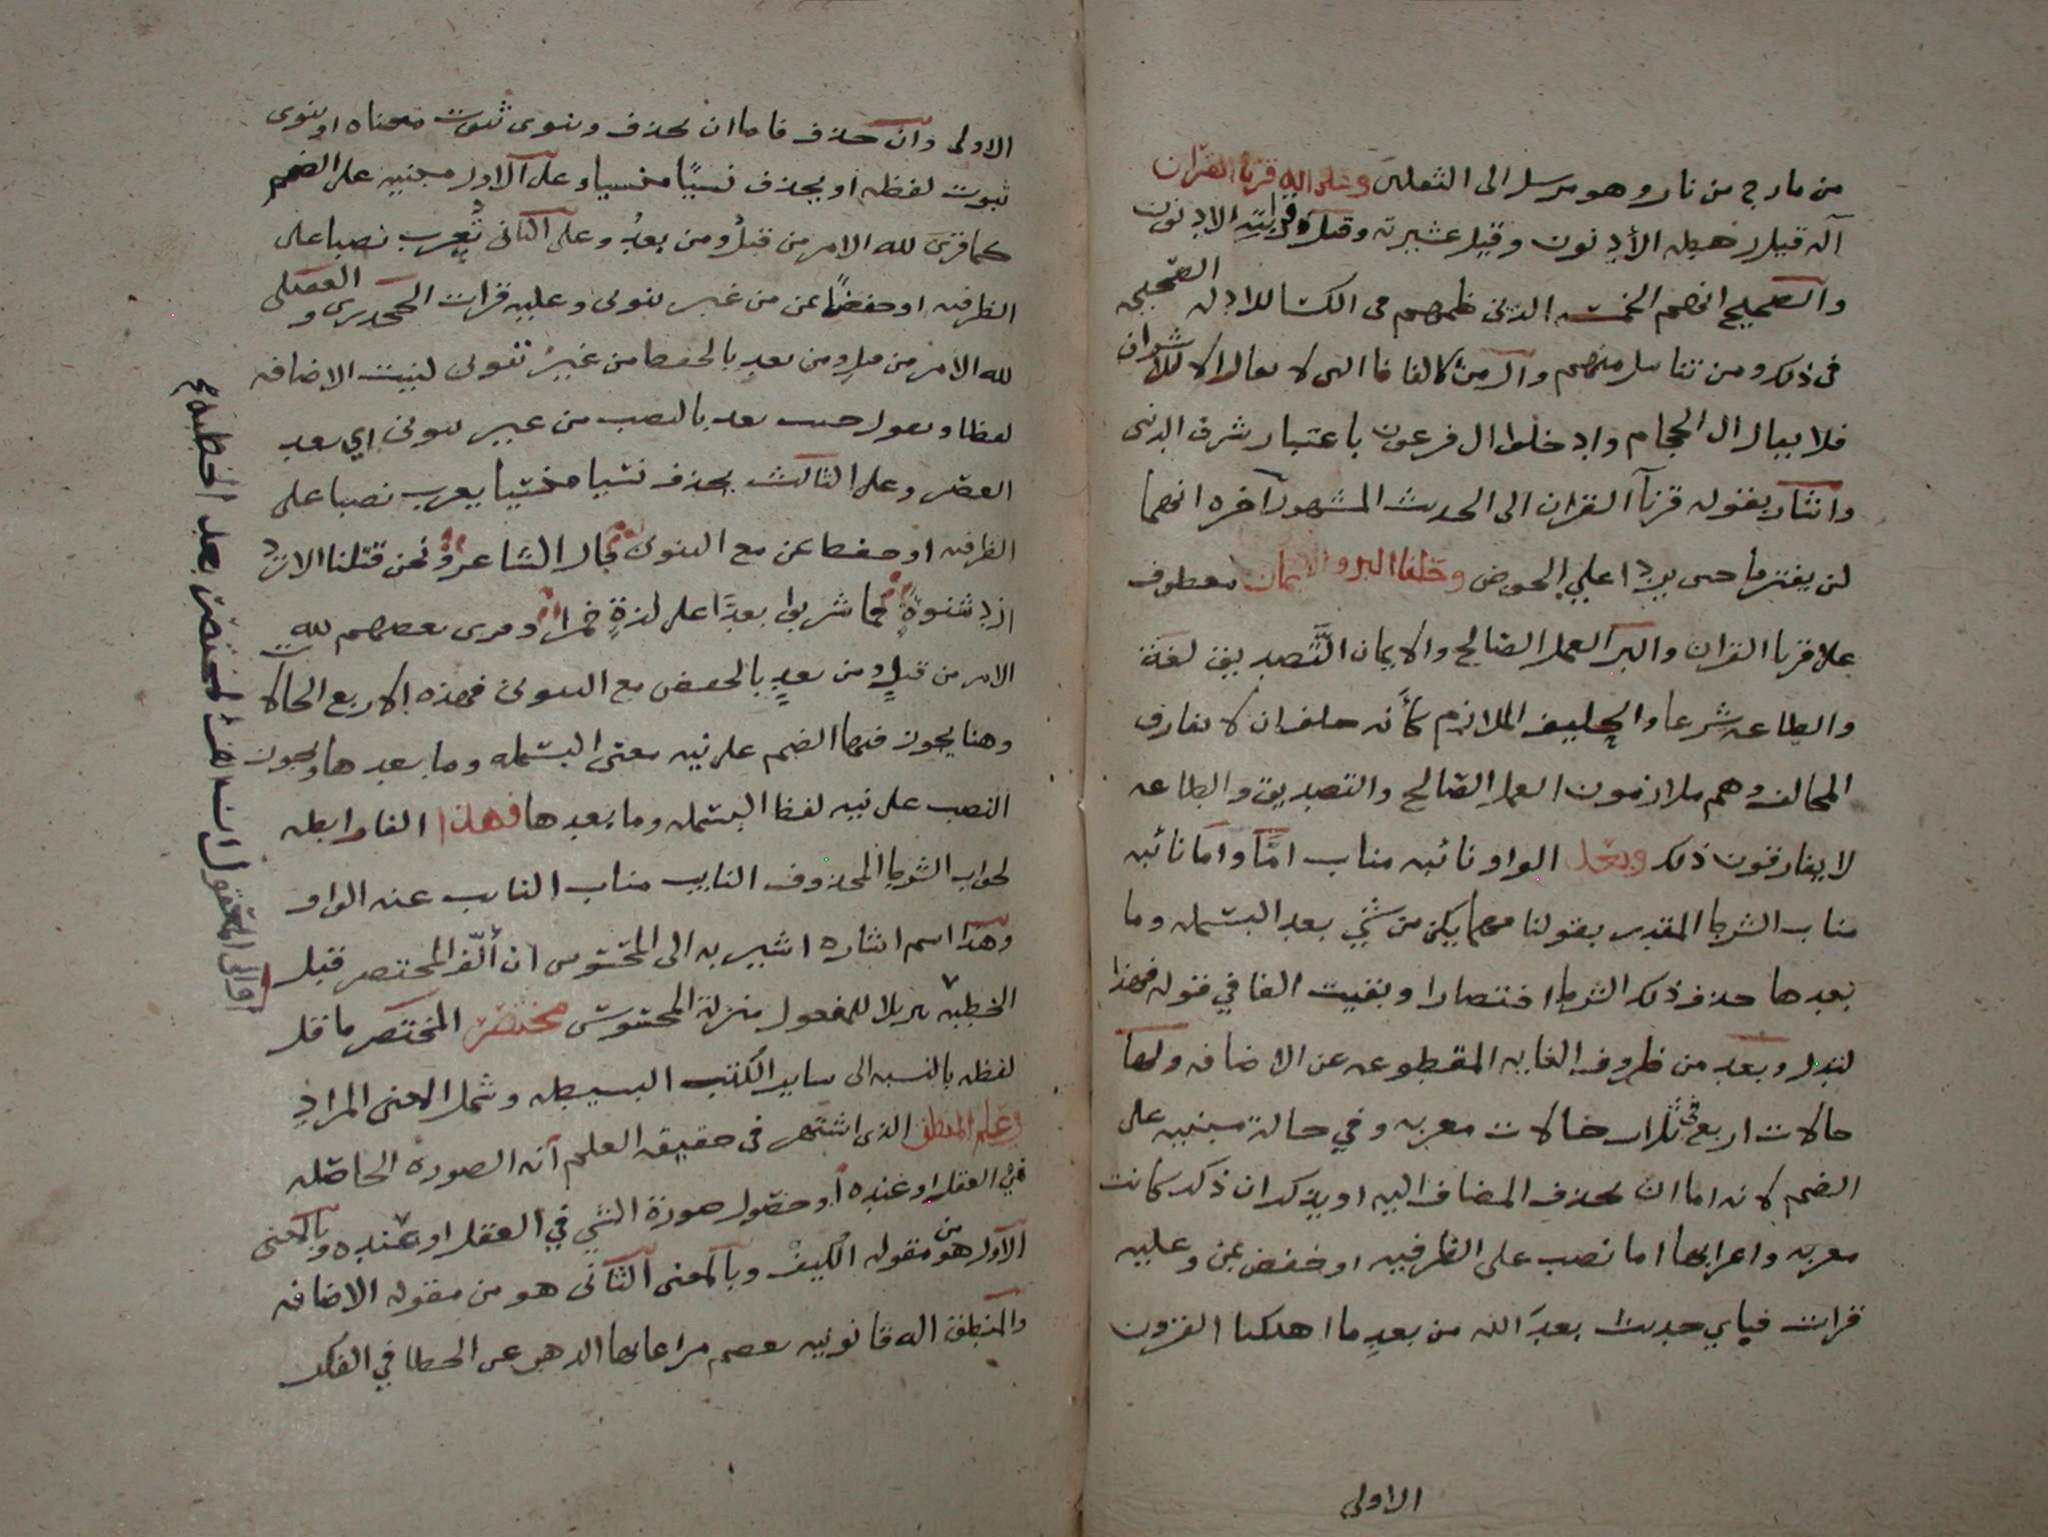 من مارج من نار وهو مرسل الى الثقلين وعلى اله قرنا القران
آله قيل رهطه الأدنون وقيل عشيرته وقيل قرابته الادنون
والصحيح انهم الخمسه الذين ضمهم في الكسا للادله الصحيحه
في ذلك ومن تناسل منهم وال من كالفاظ التي لا تقال الا للاشراف
فلا يقال ال الحجام وادخلوا ال فرعون باعتبار شرف الدنى
واشار بقوله قرنآ القران الى الحديث المشهور آخره انهما
لن يفترقا حتى يردا علي الحوض وحلفا البر والايمان معطوف
على قرنا القران والبر العمل الصالح والايمان التصديق لغة
والطاعه شرعا والحليف الملازم كأنه حلف ان لا يفارق
المحالف وهم ملازمون العمل الصالح والتصديق والطاعه
لا يفارقون ذلك وبعد الواو نائبه مناب امَّا واما نائبه
مناب الشرط المقدر بقولنا مهما يكن من شي بعد البسمله وما
بعدها حذف ذلك الشرط اختصارا وبقيت الفا في قوله فهذا
لتدل وبعد من ظروف الغايه المقطوعه عن الاضافه ولها
حالات اربع في ثلاث حالات معربه وفي حالة مبنيه على
الضم لانه اما ان يحذف المضاف اليه او يذكر ان ذكر كانت
معربه واعرابها اما نصب على الظرفيه او خفض بمن وعليه
قرات فباي حديث بعدَ الله من بعدِ ما اهلكنا القرون
الاولى
الاولى وان حذف فاما ان يحذف وينوى ثبوت معناه او ينوى
ثبوت لفظه او يحذف نسيًا منسيا وعلى الاول مبنيه على الضم
كما قرى لله الامر من قبلُ ومن بعدُ وعلى الثاني تُعرب نصبا على
الظرفيه او خفضًا بمن من غير تنوين وعليه قرات الجحدري والعقيلي
لله الامر من قبلِ ومن بعدِ بالخفض من غير تنوين لنيت الاضافه
لفظا وتقول جيت بعد بالنصب من غير تنوين اي بعد
العصر وعلى الثالث يحذف نسيا منسيا يعرب نصبا على
الظرفيه او خفضا بمن مع التنوين قال الشاعر ونحن قتلنا الازد
ازد شنوةٍ فما شربوا بعدًا على لذةٍ خمرا وقرى بعضهم لله
الامر من قبلٍ ومن بعدٍ بالخفض مع التنوين فهذه الاربع الحالا
وهنا يجوز فيها الضم على نيه معنى البسمله وما بعدها ويجوز
النصب على نيه لفظ البسمله وما بعدها فهذا الفا رابطه
لجواب الشرط المحذوف النايب مناب النايب عنه الواو
وهذا اسم اشاره اشير به الى المحسوس ان ألّف المختصر قبل
الخطبه تنزيلا للمعقول منزلة المحسوس مختصر المختصر ما قل
لفظه بالنسبه الى ساير الكتب البسيطه وشمل المعنى المراد
في علم المنطق الذي اشتهر في حقيقه العلم أنه الصورة الحاصله
في العقل او عنده أو حصول صورة الشي في العقل او عنده وبالمعنى
الاول هو من مقوله الكيف وبالمعنى الثاني هو من مقوله الاضافه
والمنطق اله قانونيه تعصم مراعاتها الذهن عن الخطا في الفكر